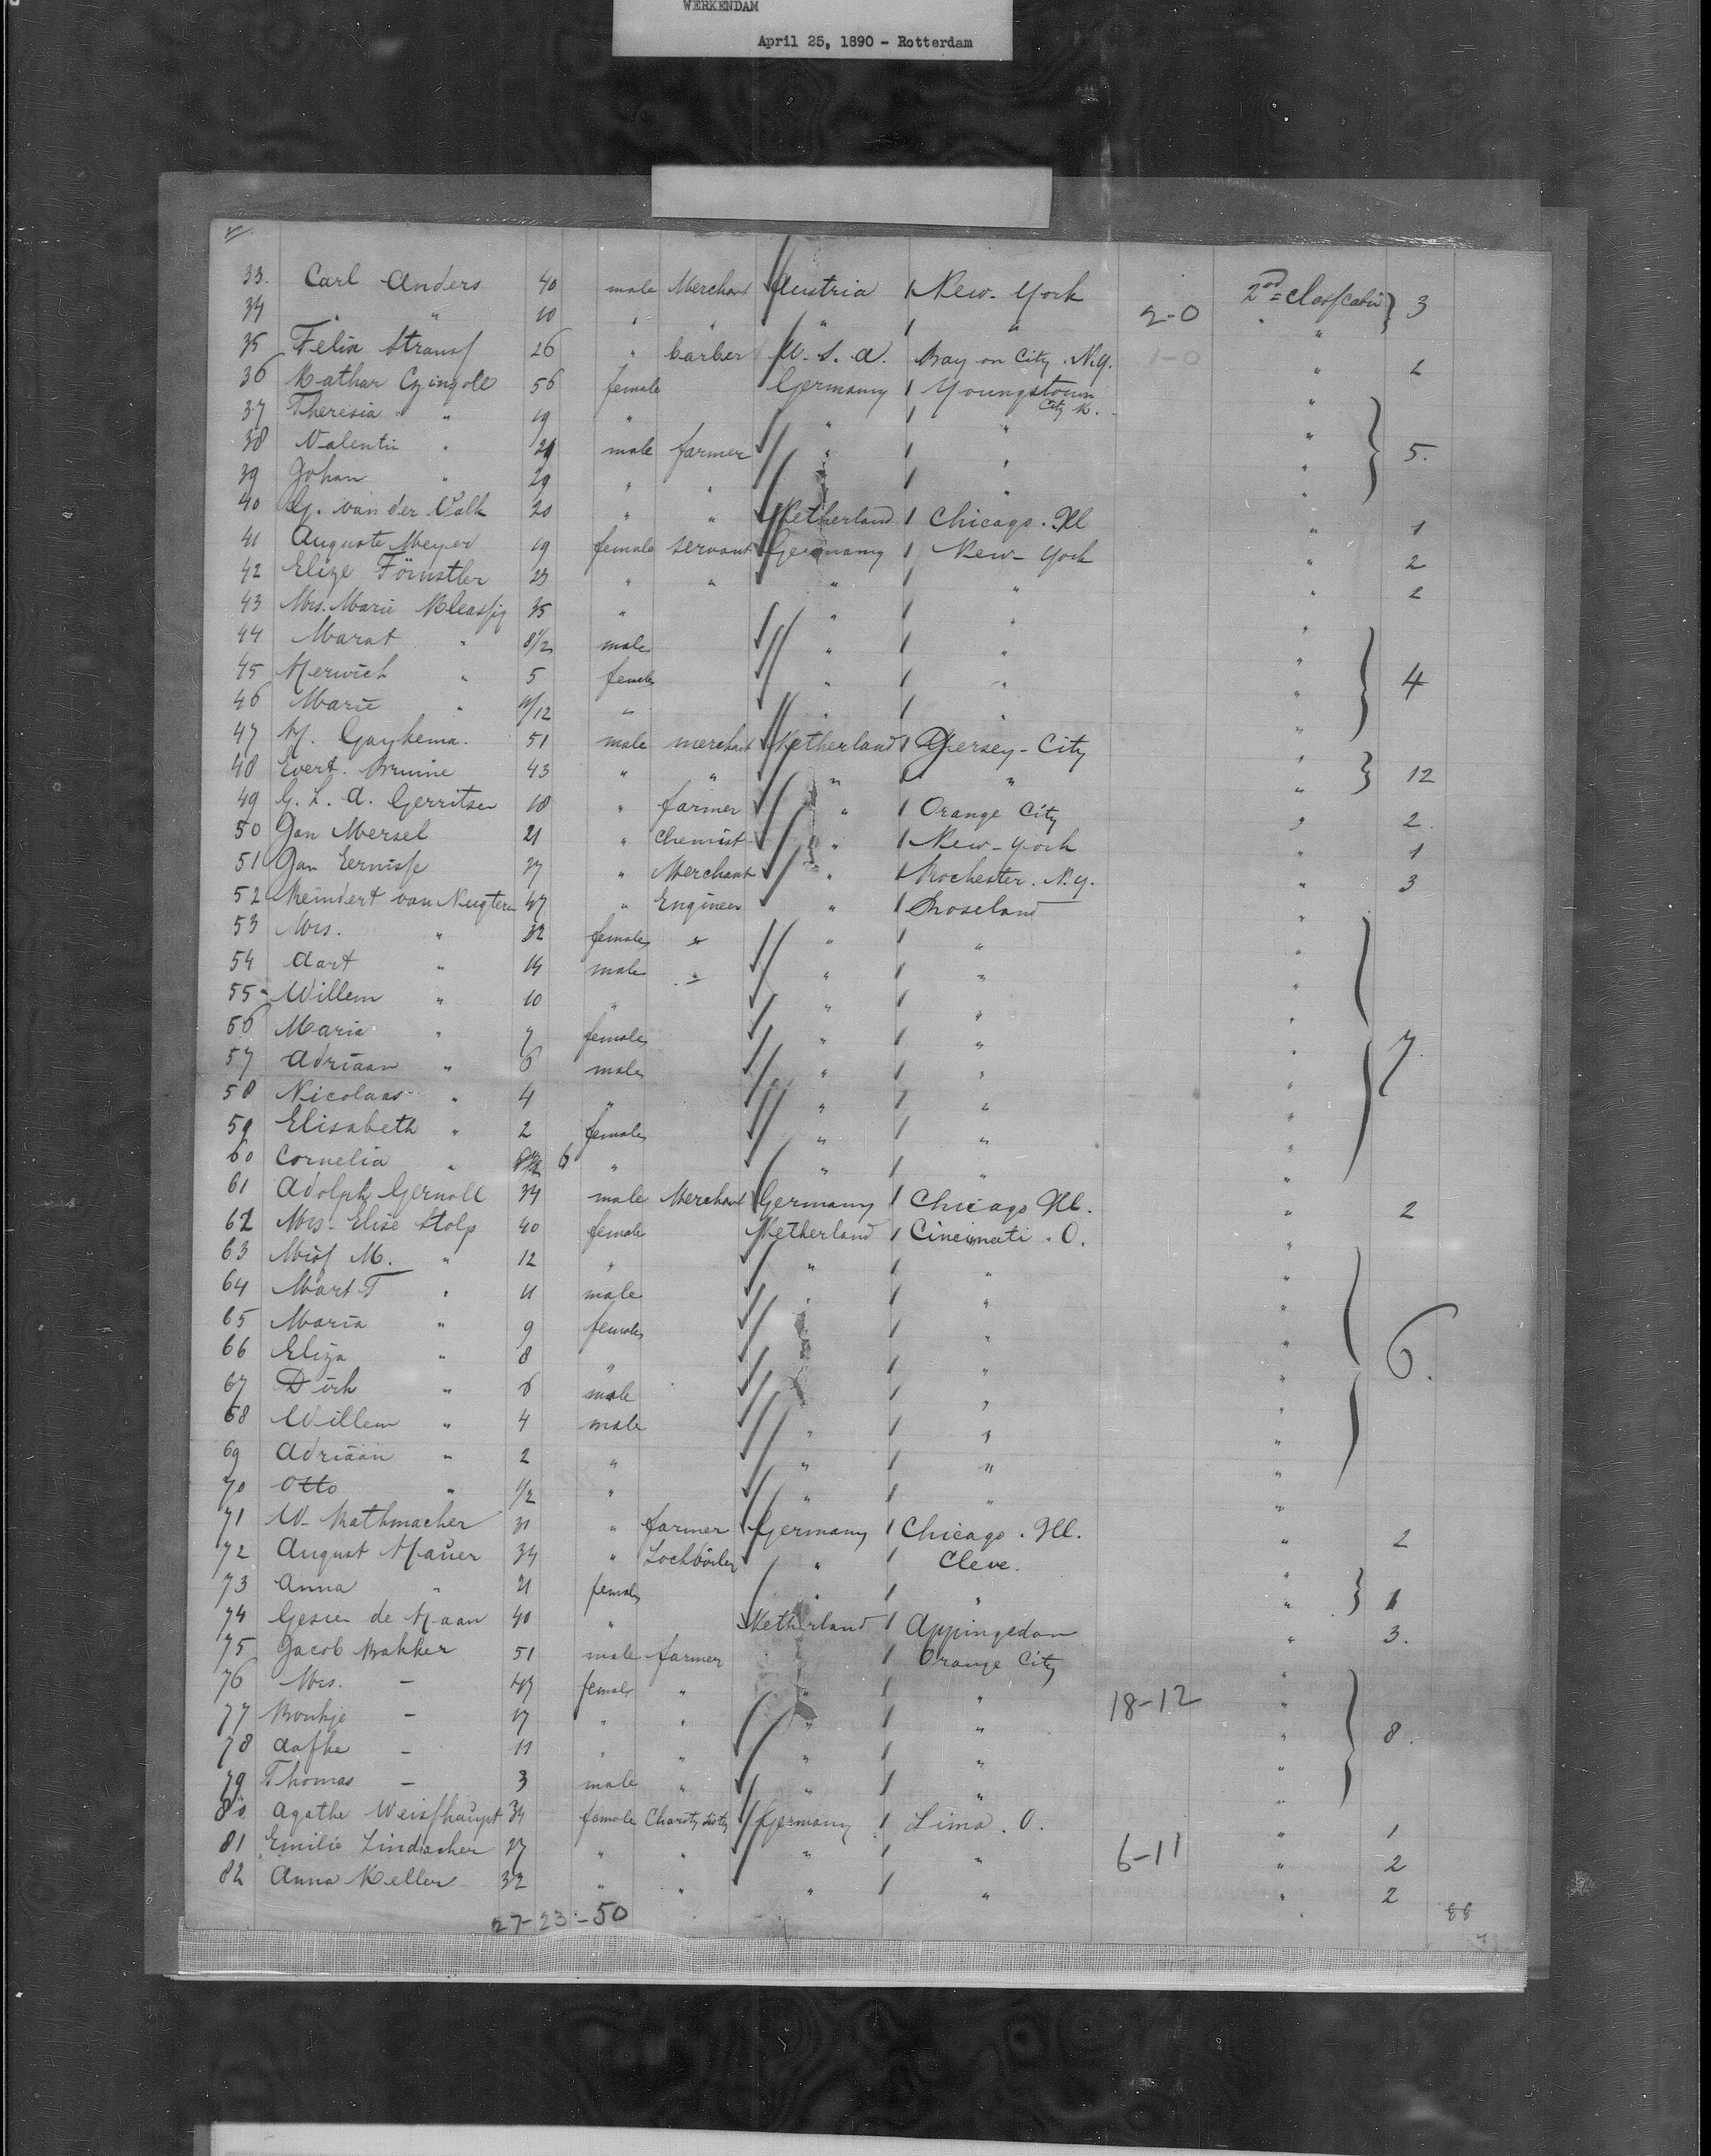 WERKENDAM
April 25, 1890 - Rotterdam
33. Carl Anders 40 male Merchant Austria New-York 2nd = Class Cabin } 3
34 " " 10 " " " " 2-0 "
35 Felix Strauss 26 " barber U.S.A. Bay on City. N.Y. 1-0 " 2
36 Kathar Czingoll 56 female Germany Youngstown "
City
37 Theresia " 19 " " " "
38 Valentin " 29 male farmer " " " } 5.
39 Johan " 29 " " " " "
40 G. van der Valk 20 " " Netherland Chicago. Ill " 1
41 Auguste Meyer 19 female servant Germany New-York " 2
42 Elize 23 " " " " " 2
43 Mrs. Marie 35 " " " "
44 " 8 1/2 male " " "
45 " 5 female " " " } 4
46 Marie " /12 " " " "
47 51 male merchant Netherland Jersey-City "
48 Evert. Bruine 43 " " " " " } 12
49 G. L. A. Gerritsen 18 " farmer " Orange City " 2.
50 Jan Mersel 21 " Chemist " New-York " 1
51 Jan Ernisse 27 " Merchant " Rochester. N.Y. " 3
52 Reindert van Nugteren 47 " Engineer " Roseland "
53 Mrs. " 32 female " " " "
54 Aart " 14 male " " " "
55 Willem " 10 " " " "
56 Marie " 7 female " " " } 7.
57 Adriaan " 6 male " " "
58 Nicolaas " 4 " " " "
59 Elisabeth " 2 female " " "
60 Cornelia " 6 " " " "
61 Adolph Gernoll 34 male Merchant Germany Chicago Ill. " 2
62 Mrs. Elise Stolp 40 female Netherland Cincinnati. O. "
63 Miss M. " 12 " " " "
64 Mart T " 11 male " " "
65 Maria " 9 female " " } 6.
66 Eliza " 8 " " "
67 Dirk " 6 male " "
68 Willem " 4 male " " "
69 Adriaan " 2 " " " "
70 Otto " 1/2 " " " "
71 W. Rathmacher 31 " farmer Germany Chicago. Ill. " 2
72 August Hauer 34 " " Cleve. "
73 Anna " 21 female " " " } 1
74 Gesien de Haan 40 " Netherland Appingedam " 3.
75 Jacob Bakker 51 male farmer " Orange City "
76 Mrs. - 47 female " " " 18-12 "
77 Boukje - 17 " " " " " } 8.
78 Aafke - 11 " " " " "
79 Thomas - 3 male " " " "
80 Agathe Weisshaupt 34 female Germany Lima. O. " 1
81 Emilie Lindacher 27 " " " " 6-11 " 2
82 Anna Keller 32 " " " " " 2
27-23-50